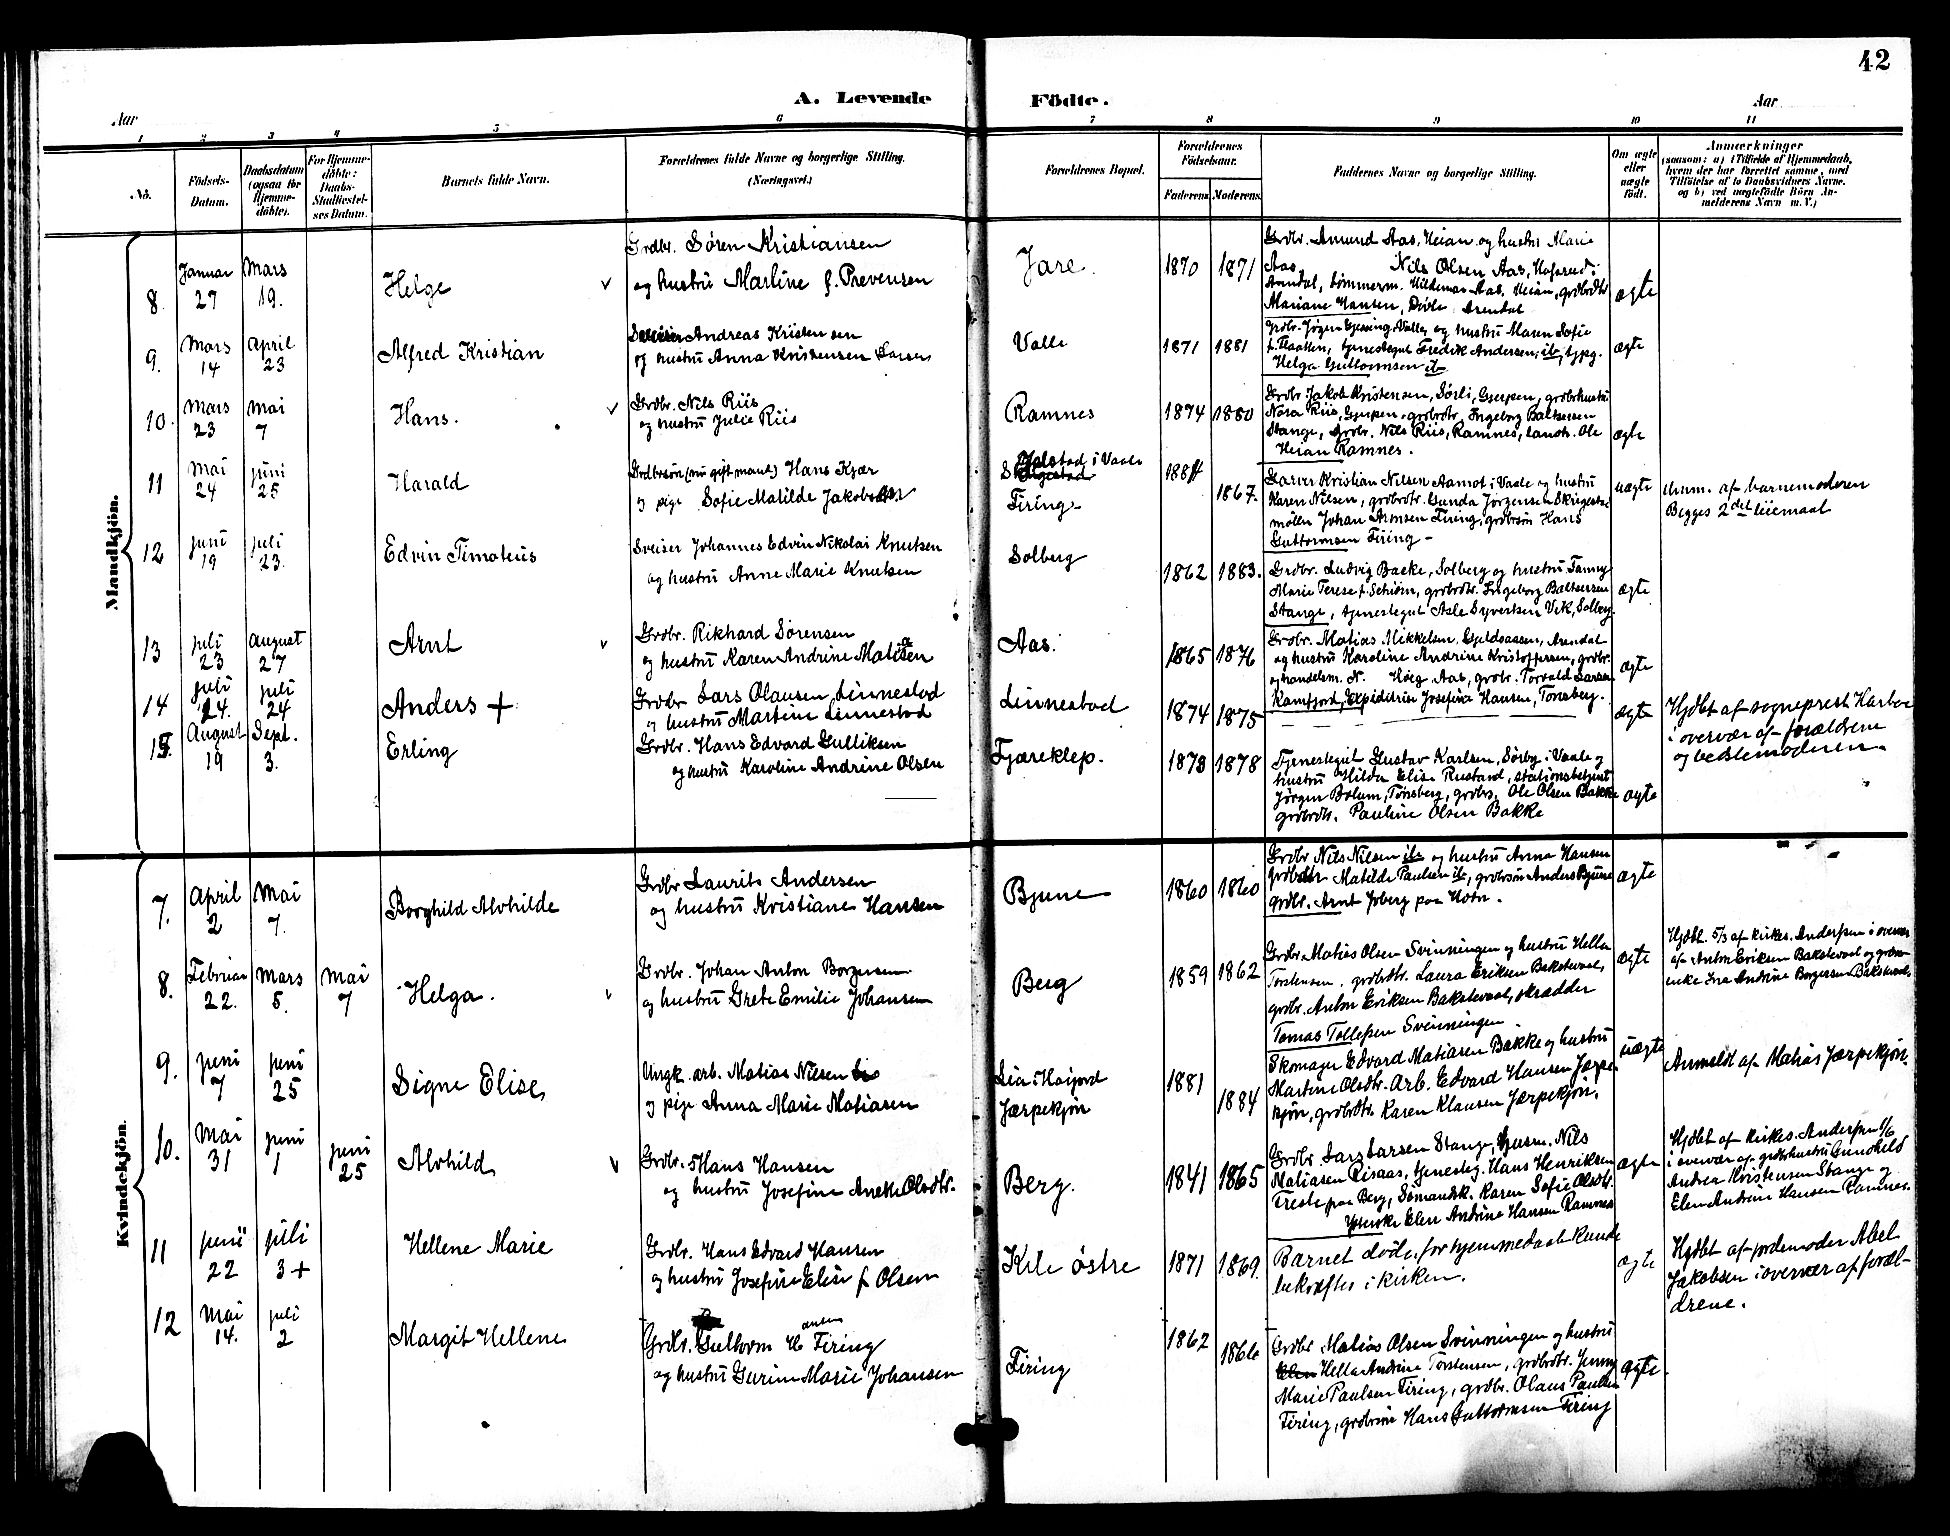 42
A. Levende Födte.
Aar
Aar
1 2 3 4 5 6 7 8 9 10 11
No.
Födsels-Datum.
Daabsdatum (ogsaa for Hjemme-döbte).
For Hjemme-döbte: Daabs-Stadfæstel-ses Datum.
Barnets fulde Navn.
Forældrenes fulde Navne og borgerlige Stilling. (Næringsvei.)
Forældrenes Bopæl.
Forældrenes Födselsaar.
Faderens Moderens
Faddernes Navne og borgerlige Stilling.
Om ægte eller uægte födt.
Anmærkninger
(saasom: a) i Tilfælde af Hjemmedaab,
hvem der har forrettet samme, med
Tilföielse af to Daabsvidners Navne.
og b) ved uægtefödte Börn An-
melderens Navn m. V.)
Mandkjön.
8. Januar 27 Mars 19. Helge
Grdbr. Sören Kristiansen
og hustru Martine f. Prevensen
Jare. 1870 1871
Grdbr. Amund Aas, Heian og hustru Marie
Aas, Nils Olsen Aas, Hofsrud,
Arndal, tömmerm. Hildemar Aas, Heian, grdbrdtr
Mariane Hansen, Arendal
ægte
9. Mars 14 April 23 Alfred Kristian
Andreas Kristensen
og hustru Anna Kristensen
Valle 1871 1881
Grdbr. Jörgen Gjessing, Valle og hustru Maren Sofie
f. Flaatten, tjenestegut Fredik Andersen, ib, tjpg.
Helga Guttormsen ib
ægte
10. Mars 23 Mai 7 Hans.
Grdbr. Nils Riis
og hustru Julie Riis
Ramnes 1874 1880
Grdbr. Jakob Kristensen, Sörli, Gjerpen, grdbrhustru
Nora Riis, Gjerpen, grdbrdtr. Ingeborg Baltsersen
Stange, Grdbr. Nils Riis, Ramnes, landh. Ole
Heian Ramnes.
ægte
11 Mai 24 Juni 25 Harald
Grdbrsön (nu gift mand) Hans Kjær
og pige Sofie Matilde Jakobsen
i Vaale
Firing
1884 1867.
Garver Kristian Nilsen Aamot i Vaale og hustru
Karen Nilsen, grdbrdtr. Gunda Jörgensen
möller Johan Arnsen Firing, grdbrsön Hans
Guttormsen Firing
uægte
Anm. af barnemoderen
Begges 2det leiemaal
12 Juni 19 Juli 23. Edvin Timoteus
Sveiser Johannes Edvin Nikolai Knutsen
og hustru Anne Marie Knutsen
Solberg 1862 1883.
Grdbr. Ludvig Bakke, Solberg og hustru Fanny
Marie Terese f. Schiörn, grdbrdtr. Ingeborg Baltsersen
Stange, tjenestegut Asle Syvertsen Vik, Solberg
ægte
13 Juli 23 August 27 Arnt
Grdbr. Rikhard Sörensen
og hustru Karen Andrine Matisen
Aas. 1865 1876
Grdbr. Matias Mikkelsen, Arendal
og hustru Karoline Andrine Kristoffersen, grdbr.
og handelsm. N. Höeg Aas, grdbr. Torvald Larsen
Ramfjord, Expeditrin Josefine Hansen, Tonsberg.
ægte
14 Juli 24. Juli 24 Anders +
Grdbr Lars Olausen Linnestad
og hustru Martine Linnestad
Linnestad 1874 1875
ægte
Hjdbt af sogneprest Harboe
i overvær af forældrene
og bedstemoderen.
15 August 19 Sept. 3. Erling
Grdbr. Hans Edvard Gulliksen
og hustru Karoline Andrine Olsen
Fjæreklep. 1873 1878
Tjenestegut Gustav Karlsen, Sörby i Vaale og
hustru Hilda Elise Rustand, stationsbetjent
Jörgen Bolum, Tönsberg, grdbrs. Ole Olsen Bakke
grdbrdtr. Pauline Olsen Bakke
ægte
Kvindekjön.
7. April 2 Mai 7. Borghild Alvhilde
Grdbr Laurits Andersen
og hustru Kristiane Hansen
Bjune 1860 1860
Grdbr Nils Nilsen ib og hustru Anna Hansen
grdbrdtr Matilde Paulsen ib, grdbrsön Anders Bjune
grdbr. Arnt
ægte
8. Februar 22. Mars 5. Mai 7 Helga.
Grdbr. Johan Anton Borgersen
og hustru Grete Emilie Johansen
Berg 1859 1862
Grdbr Matias Olsen Svinningen og hustru Hella
Torstensen, grdbrdtr. Laura Eriksen Bakstevaal,
grdbr. Anton Eriksen Bakstevaal, skrædder
Tomas Tollefsen Svinningen
ægte
Hjdbt. 5/3 af kirkes. Andersen i overvær
af Anton Eriksen Bakstevaal og grdbr-
enke Andrine Borgersen Bakstevaal.
9. Juni 7 Juni 25 Signe Elise
Ungk. arb. Matias Nilsen
og pige Anna Marie Matiasen
Lia i
Jærpekjön
1881 1884
Skomager Edvard Matiasen Bakke og hustru
Martine Olsdtr. Arb. Edvard Hansen Jærpe-
kjön, grdbrdtr Karen Klausen Jærpekjön.
uægte
Anmeldt af Matias Jærpekjön.
10. Mai 31 Juni 1 Juni 25 Alvhild
Grdbr. Hans Hansen
og hustru Josefine Aneke Olsdtr.
Berg. 1841 1865
Grdbr Lars Larsen Stange, husm. Nils
Matiasen Risaas, tjenesteg. Hans Henriksen
Treste paa Berg, Sömandsk. Karen Sofie Olsdtr.
Elen Andrine Hansen Ramnes
ægte
Hjdbt af kirkes. Andersen 1/6
i overvær af grdbrhustru Gunhild
Andrea Kristensen Stange og
Elen Andrine Hansen Ramnes.
11 Juni 22 Juli 3 + Hellene Marie
Grdbr. Hans Edvard Hansen
og hustru Josefine Elise f. Olsen
Kile östre 1871 1869.
Barnet döde, för hjemmedaab kunde
bekræftes i kirken.
ægte
Hjdbt af jordemoder Abel
Jakobsen i overvær af foræl-
drene.
12 Mai 14. Juli 2 Margit Hellene
Grdbr. Guttorm Hansen Firing
og hustru Gurine Marie Johansen
Firing 1862 1866
Grdbr Matias Olsen Svinningen og hustru
Hella Andrine Torstensen, grdbrdtr. Jenny
Marie Paulsen Firing, grdbr. Olaus Paulsen
Firing, grdbrsön Hans Guttormsen Firing
ægte.